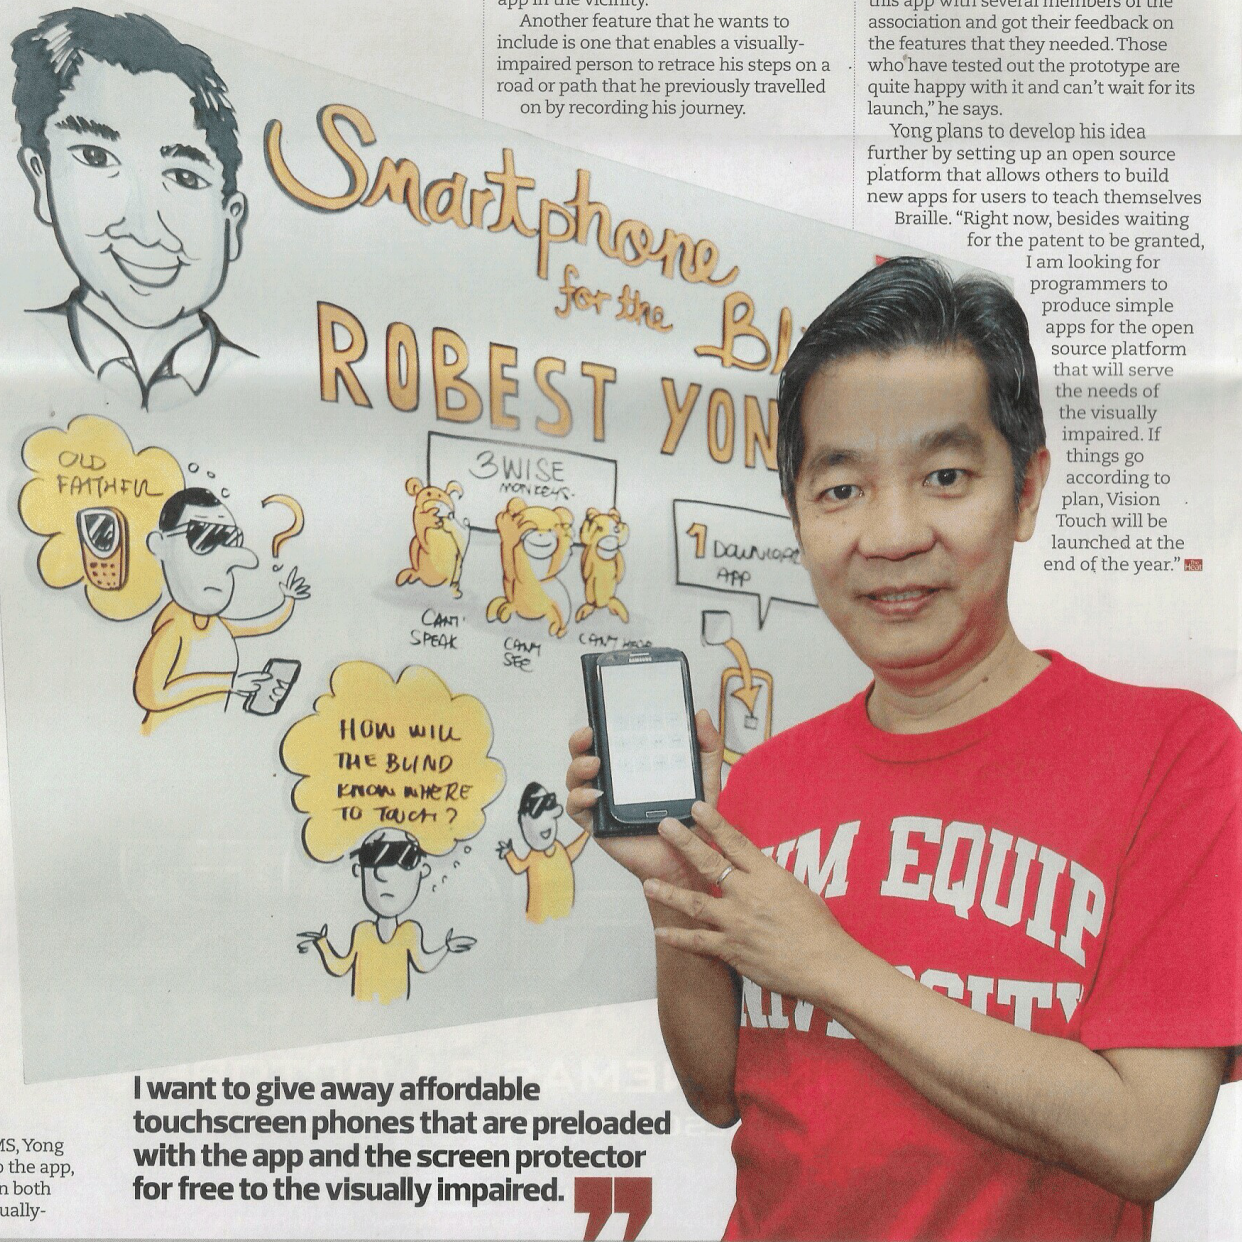 app in the vicinity.
Another feature that he wants to
include is one that enables a visually-
impaired person to retrace his steps on a
road or path that he previously travelled
on by recording his journey.
this app with several members of the
association and got their feedback on
the features that they needed. Those
who have tested out the prototype are
quite happy with it and can't wait for its
launch,” he says.
Yong plans to develop his idea
further by setting up an open source
platform that allows others to build
new apps for users to teach themselves
Braille. “Right now, besides waiting
for the patent to be granted,
I am looking for
programmers to
produce simple
apps for the open
source platform
that will serve
the needs of
the visually
impaired. If
things go
according to
plan, Vision
Touch will be
launched at the
end of the year.”
Smartphone
for the
Bli
ROBEST YON
OLD
FAITHFUL
?
3 WISE
MONKEYS.
CAN'T
SPEAK
CAN'T
SEE
CAN'T HEAR
1 DOWNLOAD
APP
HOW WILL
THE BLIND
KNOW WHERE
TO TOUCH?
SAMSUNG
UM EQUIP
NIVERSITY
I want to give away affordable
touchscreen phones that are preloaded
with the app and the screen protector
for free to the visually impaired.”
MS, Yong
o the app,
n both
ually-